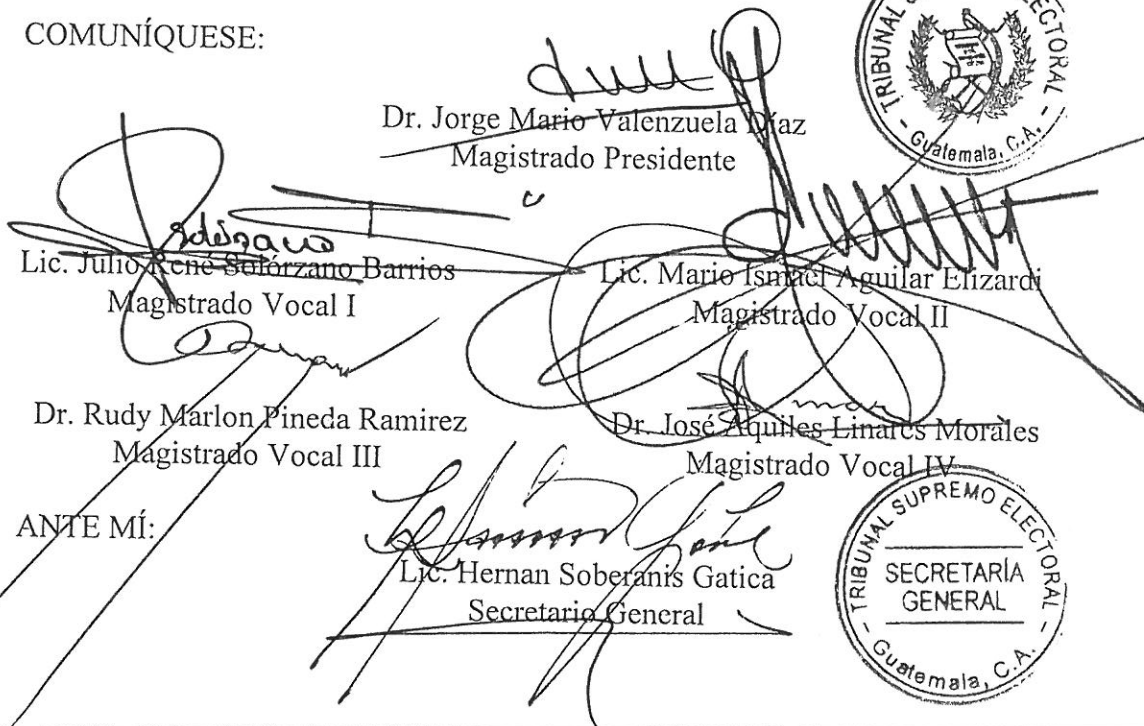 COMUNÍQUESE:
TRIBUNAL S ECTORAL
- Guatemala, C.A. -
Dr. Jorge Mario Valenzuela Díaz
Magistrado Presidente
Solórzano
Lic. Julio René Solórzano Barrios
Magistrado Vocal I
Lic. Mario Ismael Aguilar Elizardi
Magistrado Vocal II
Dr. Rudy Marlon Pineda Ramirez
Magistrado Vocal III
Dr. José Aquiles Linares Morales
Magistrado Vocal IV
ANTE MÍ:
Lic. Hernan Soberanis Gatica
Secretario General
TRIBUNAL SUPREMO ELECTORAL
SECRETARÍA
GENERAL
- Guatemala, C.A. -